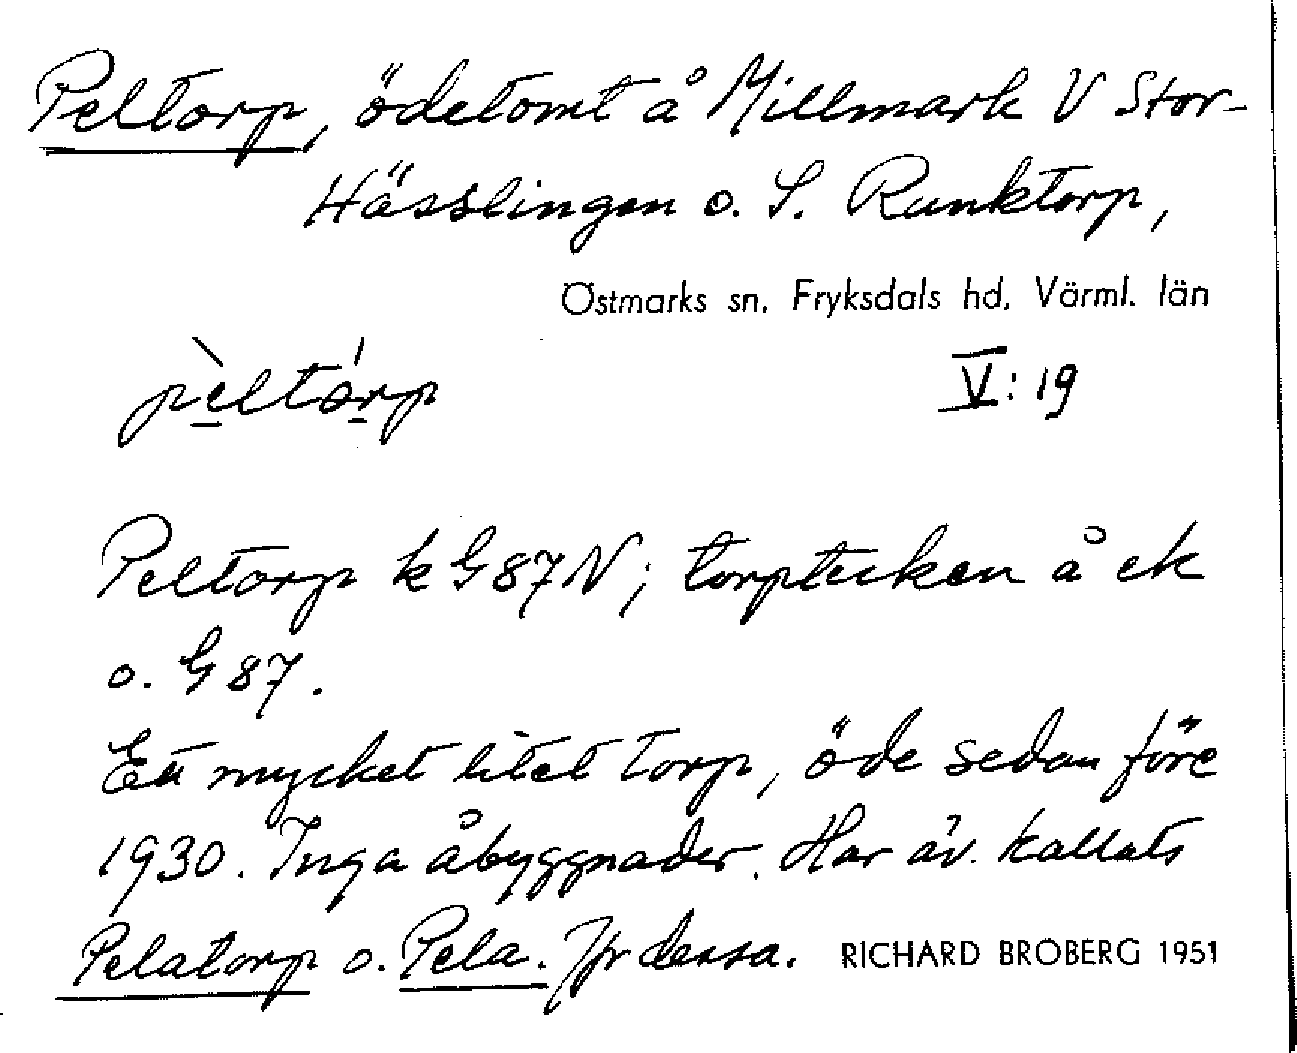 Peltorp, ödetomt å Millmark V Stor-
Hässlingen o. S. Runktorp,
Östmarks sn. Fryksdals hd. Värml. län
pèltórp V: 19
Peltorp k G87N; torptecken å ek
o. G87.
Ett mycket litet torp, öde sedan före
1930. Inga åbyggnader. Har äv. kallats
Pelatorp o. Pela. Jfr dessa. RICHARD BROBERG 1951